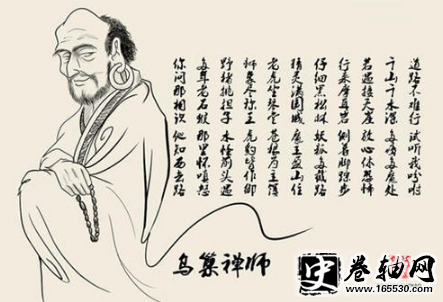 道路不难行 试听我吩咐
千山千水深 多瘴多魔处
若遇接天崖 放心休恐怖
行来摩耳岩 侧着脚踪步
仔细黑松林 妖狐多截路
精灵满国城 魔主盈山住
老虎坐琴堂 苍狼为主簿
狮象尽称王 虎豹皆作御
野猪挑担子 水怪前头遇
多年老石猴 那里怀嗔怒
你问那相识 他知西去路
乌巢禅师
卷轴网
www.165530.com